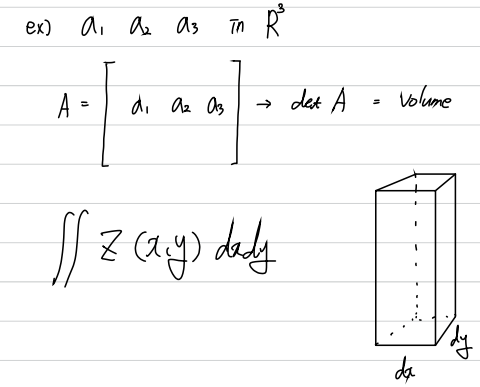 ex) a₁ a₂ a₃ in R³
A = [ a₁ a₂ a₃ ] → det A = Volume
∬ Z (x,y) dxdy
dy
dx